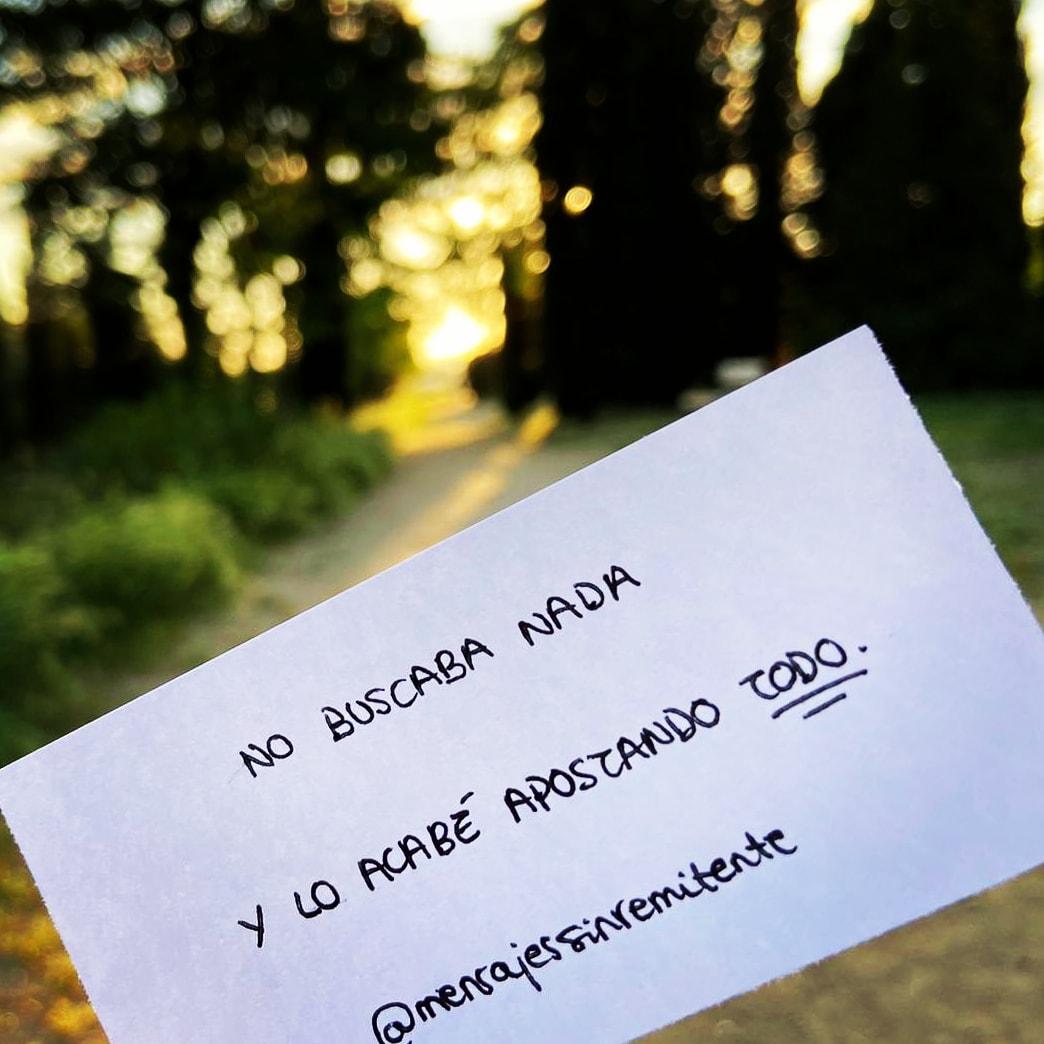 NO BUSCABA NADA
Y LO ACABÉ APOSTANDO TODO.
@mensajessinremitente